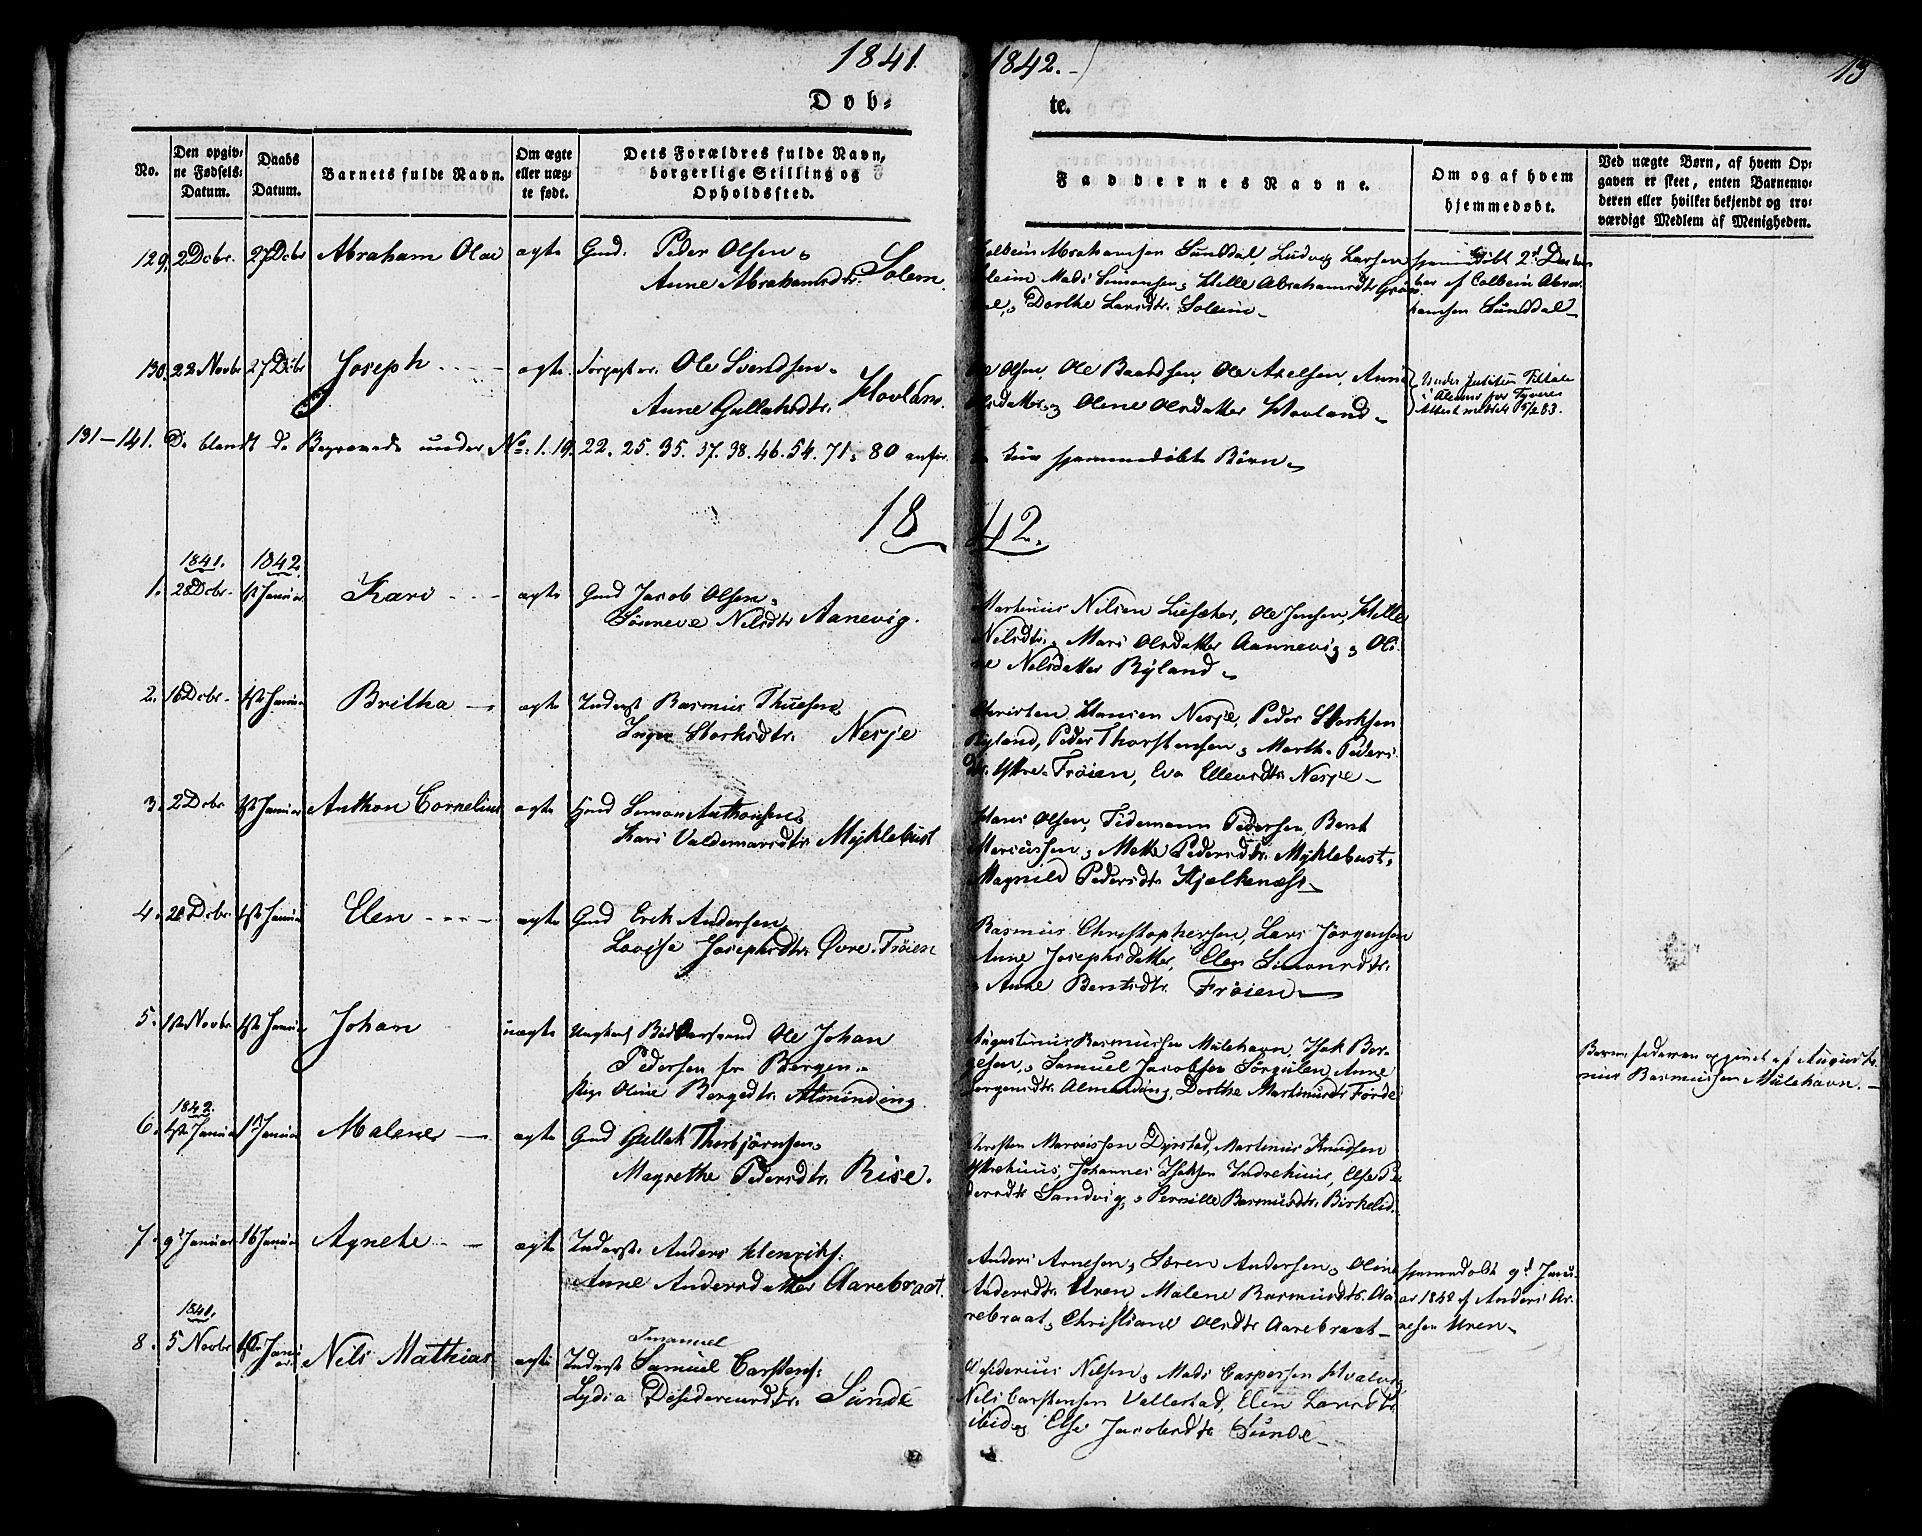 1841. 1842. 13
Døb- te.
No.
Den opgiv-
ne Fødsels-
Datum.
Daabs
Datum.
Barnets fulde Navn.
Om ægte
eller uæg-
te født.
Dets Forældres fulde Navn,
borgerlige Stilling og
Opholdssted.
Faddernes Navne.
Om og af hvem
hjemmedøbt.
Ved uægte Børn, af hvem Op-
gaven er skeet, enten Barnemo-
deren eller hvilket bekjendt og tro-
værdigt Medlem af Menigheden.
129. 2 Dcbr. 27 Dcbr Abraham Olai ægte Gmd. Peder Olsen
Anne Abrahamsdtr. Solem.
Colbein Abrahamsen Sunddal, Ludvig Larsen
Soleim Mads Simonsen, Hille Abrahamsdtr
Dorthe Larsdtr. Soleim
hjemmedøbt 2d Decbr
af Colbein Abra-
hamsen Sunddal
130. 22 Novbr 27 Dcbr Joseph ægte Ole Svendsen
Anne Gullaksdtr. Hovland.
Ole Olsen, Ole Baardsen, Ole Axelsen, Anne
Olsdatter, Oline Olsdatter Hovland
131-141. De blandt de Begravede under No. 1. 19. 22. 25. 35. 37. 38. 46. 54. 71. 80 anfør-
te hjemmedøbte Børn
1842.
1841. 1842.
1. 28 Dcbr. 1st Januar Kari ægte Gmd Jacob Olsen
Sønneve Nilsdtr Aanevig.
Martinus Nilsen Liesæter, Ole Jensen, Hille
Nilsdtr. Mari Olsdatter Aannevig, Oli-
ne Nilsdatter Ryland
2. 16 Dcbr. 1st Januar Britha ægte Inderst Rasmus Thuesen
Inger Storksdtr. Nesje
Christen Hansen Nesje, Peder Storksen
Ryland, Peder Thorstensen, Marthe Peders-
dtr. Yttre-Frøien, Eva Ellevsdtr. Nesje
3. 2 Dcbr 1st Januar Anthon Cornelius ægte Gmd Simon Anthonsen
Kari Valdemarsdtr Myklebust
Hans Olsen, Tidemann Pedersen, Bernt
Marcussen, Mette Pedersdtr. Myklebust,
Magnild Pedersdtr Hjelkenæs
4. 28 Dcbr. 1st Januar Elen ægte Gmd Erik Andersen
Lovisa Josephsdtr. Øvre-Frøien
Rasmus Christophersen, Lars Jørgensen
Anne Josephsdatter, Elen Simonsdtr.
Anne Berntsdtr Frøien
5. 1st Novbr 1st Januar Johan uægte Ungkarl Ole Johan
Pedersen fra Bergen
Pige Oline Børgesdtr. Almending
Augustinus Rasmussen Mülehavn, Isak Bør-
gesen, Samuel Jacobsen Sørgulen, Anne
Børgensdtr. Almending, Dorthe Martinusdtr Førde
Barnefaderen opgivet af Augusti-
nus Rasmussen Mülehavn.
1842.
6. 1st Januar Malene ægte Gmd Gullak Thorbjørnsen
Magrethe Pedersdtr. Rise.
Christen Marcussen Dyrstad, Martinus Knudsen
Yttrehuus, Johannes Isaksen Indrehuus, Else Pe-
dersdtr Sandvig, Pernille Rasmusdtr. Birkeland
7. 9d Januar 16 Januar Agnete ægte Inderst. Anders Henriks:
Anne Andersdatter Aarebraat.
Anders Arnesen, Søren Andersen, Oline
Andersdtr. Uren Malene Rasmusdtr. Aa-
rebraat, Christiane Olsdtr Aarebraat
hjemmedøbt 9d Janu-
ar 1842 af Anders Ar-
nesen Uren
1841.
8. 5 Novbr 16 Januar Nils Mathias ægte Inderst Samuel Carstens:
Imanuel
Lydia Desideriusdtr. Sunde
Desiderius Nilsen, Mads Caspersen
Nils Carstensen Vallestad, Elen Larsdtr
ibid, Else Jacobsdtr Sunde